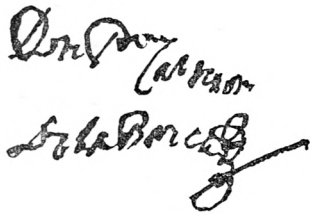 Don Po Calderon
de la Barca